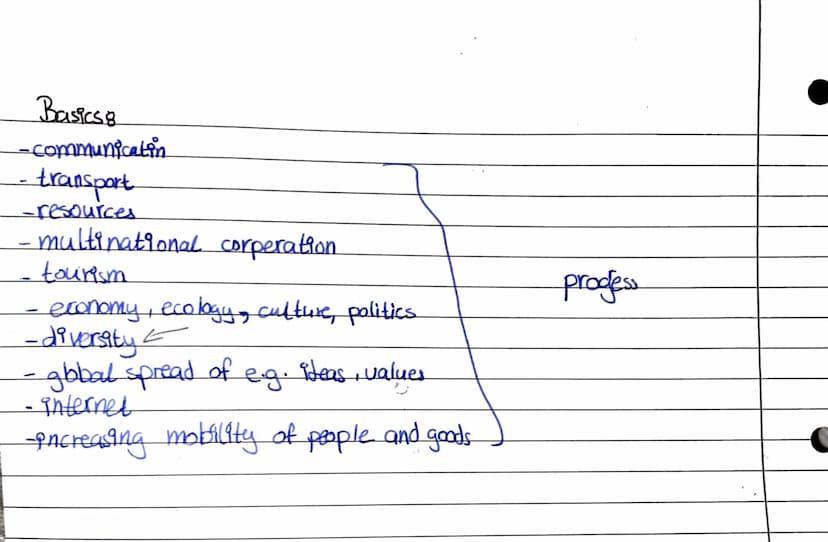 Basics:
-communicatin
- transport
-resources
- multinational corperation
- tourism
- economy, ecology, culture, politics
-diversity ←
- global spread of e.g. ideas, values
- internet
-increasing mobility of people and goods